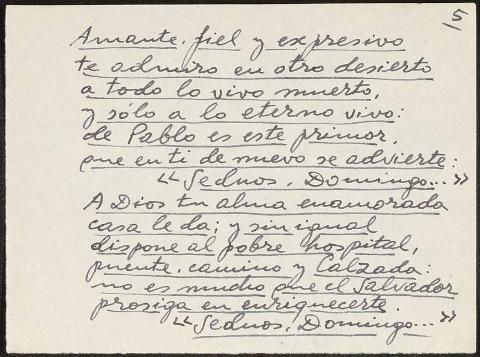 5
Amante, fiel y expresivo
te admiro en otro desierto
a todo lo vivo muerto,
y sólo a lo eterno vivo:
de Pablo es este primor,
que en ti de nuevo se advierte:
"Sednos, Domingo..."
A Dios tu alma enamorada
casa le da; y sin igual
dispone al pobre hospital,
puente, camino y Calzada:
no es mucho que el Salvador
prosiga en enriquecerte.
"Sednos, Domingo..."